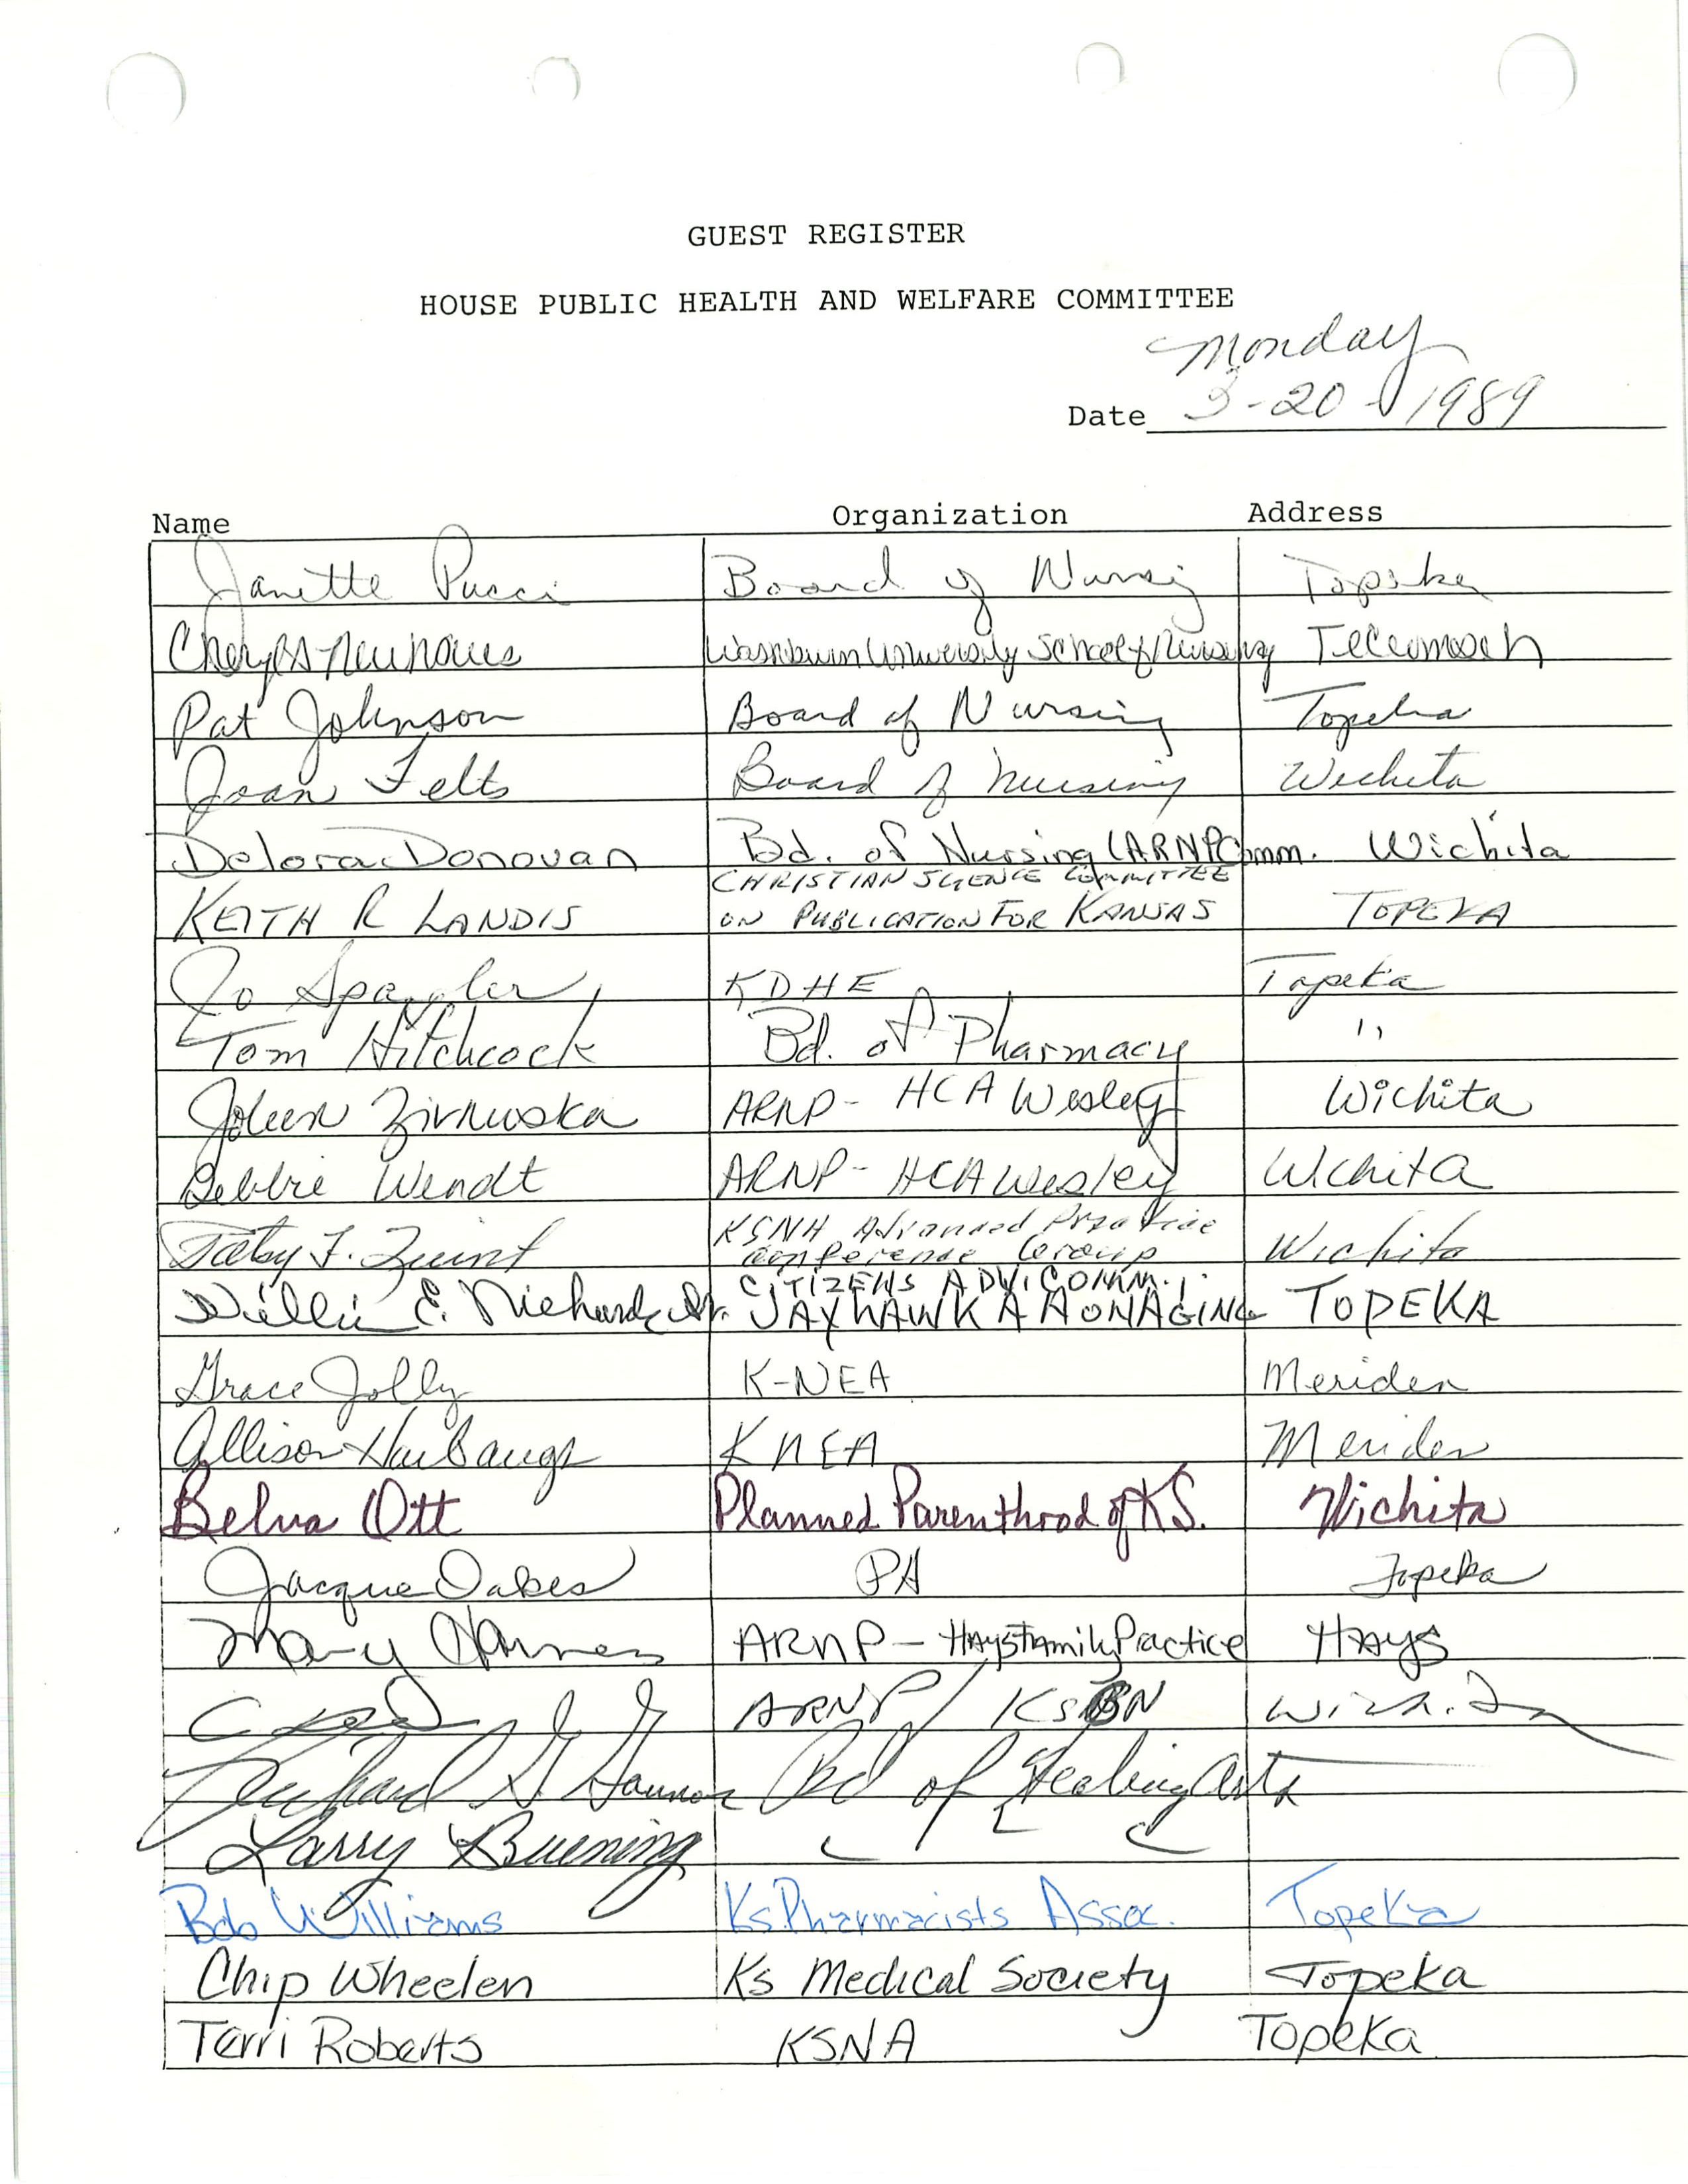 GUEST REGISTER
HOUSE PUBLIC HEALTH AND WELFARE COMMITTEE
Monday
Date 3-20-1989
Name Organization Address
Janette Pucci Board of Nursing Topeka
Cheryl Washburn University School of Nursing Tecumseh
Pat Johnson Board of Nursing Topeka
Joan Felts Board of Nursing Wichita
Delora Donovan Bd. of Nursing (ARNP Comm. Wichita
CHRISTIAN SCIENCE COMMITTEE
KEITH R LANDIS ON PUBLICATION FOR KANSAS TOPEKA
Jo Spangler KDHE Topeka
Tom Hitchcock Bd. of Pharmacy "
Joleen Zivnuska ARNP - HCA Wesley Wichita
Debbie Wendt ARNP - HCA Wesley Wichita
KSNA Advanced Practice
Conference Group Wichita
CITIZENS ADVI COMM.
E. Jr. JAYHAWK AAONAGING TOPEKA
Grace Jolly K-NEA Meriden
Allison Harbaugh KNEA Meriden
Belva Ott Planned Parenthood of KS. Wichita
Jacque Oakes PA Topeka
Mary ARNP - Hays Family Practice Hays
ARNP / KSBN
Richard G Gannon Bd of Healing Arts
Larry Buening
Bob Williams Ks Pharmacists Assoc. Topeka
Chip Wheelen Ks Medical Society Topeka
Terri Roberts KSNA Topeka